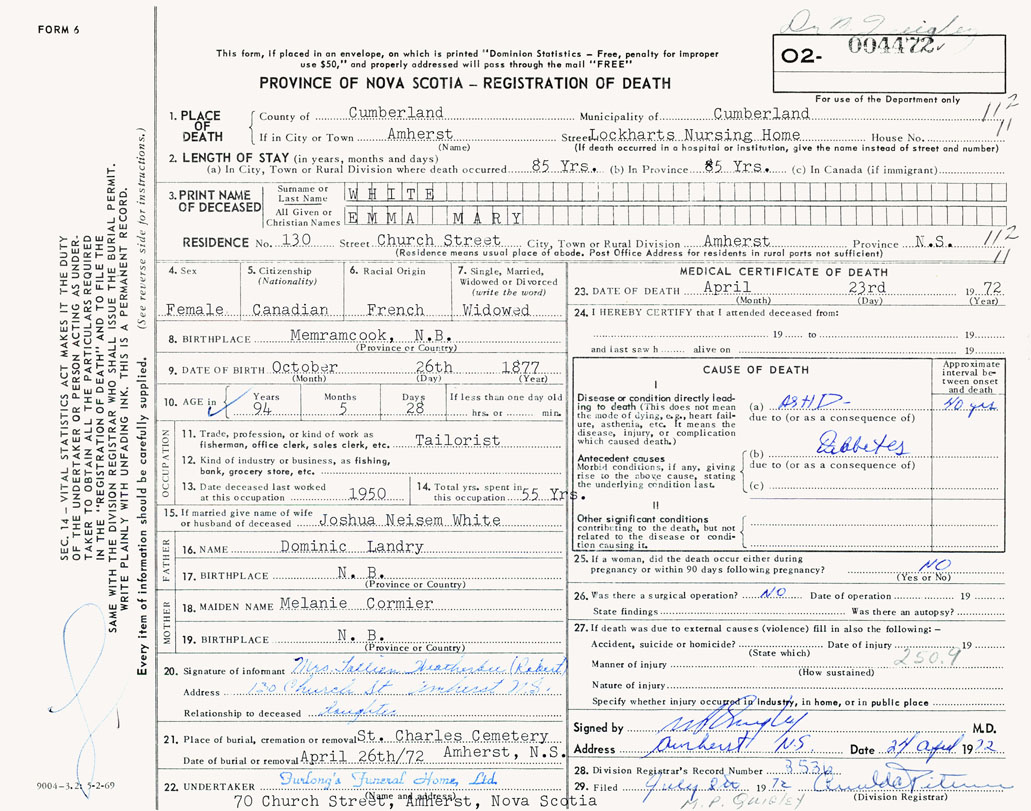 FORM 6
This form, if placed in an envelope, on which is printed "Dominion Statistics – Free, penalty for improper
use $50," and properly addressed will pass through the mail "FREE"
PROVINCE OF NOVA SCOTIA – REGISTRATION OF DEATH
02- 004472
For use of the Department only
1. PLACE OF DEATH
County of Cumberland Municipality of Cumberland 112
If in City or Town Amherst Street Lockharts Nursing Home House No. 11
(Name) (If death occurred in a hospital or institution, give the name instead of street and number)
2. LENGTH OF STAY (in years, months and days)
(a) In City, Town or Rural Division where death occurred 85 Yrs. (b) In Province 85 Yrs. (c) In Canada (if immigrant)
3. PRINT NAME OF DECEASED
Surname or Last Name WHITE
All Given or Christian Names EMMA MARY
RESIDENCE No. 130 Street Church Street City, Town or Rural Division Amherst Province N.S. 112
(Residence means usual place of abode. Post Office Address for residents in rural parts not sufficient) 11
4. Sex
Female
5. Citizenship
(Nationality)
Canadian
6. Racial Origin
French
7. Single, Married,
Widowed or Divorced
(write the word)
Widowed
8. BIRTHPLACE Memramcook, N.B.
(Province or Country)
9. DATE OF BIRTH October 26th 1877
(Month) (Day) (Year)
10. AGE in
Years Months Days If less than one day old
94 5 28 hrs. or min.
OCCUPATION
11. Trade, profession, or kind of work as
fisherman, office clerk, sales clerk, etc. Tailorist
12. Kind of industry or business, as fishing,
bank, grocery store, etc.
13. Date deceased last worked
at this occupation 1950
14. Total yrs. spent in
this occupation 55 Yrs.
15. If married give name of wife
or husband of deceased Joshua Neisem White
FATHER
16. NAME Dominic Landry
17. BIRTHPLACE N. B.
(Province or Country)
MOTHER
18. MAIDEN NAME Melanie Cormier
19. BIRTHPLACE N. B.
(Province or Country)
20. Signature of informant Mrs. (Robert)
Address 130 Church St Amherst N.S.
Relationship to deceased Daughter
21. Place of burial, cremation or removal St. Charles Cemetery
Amherst, N.S.
Date of burial or removal April 26th/72
22. UNDERTAKER Furlong's Funeral Home, Ltd.
(Name and address)
70 Church Street, Amherst, Nova Scotia
MEDICAL CERTIFICATE OF DEATH
23. DATE OF DEATH April 23rd 1972
(Month) (Day) (Year)
24. I HEREBY CERTIFY that I attended deceased from:
19 to 19
and last saw h alive on 19
CAUSE OF DEATH
Approximate
interval be-
tween onset
and death
I
Disease or condition directly lead-
ing to death (This does not mean
the mode of dying, e.g., heart fail-
ure, asthenia, etc. It means the
disease, injury, or complication
which caused death.)
(a) ASHD 40 yrs
due to (or as a consequence of)
Antecedent causes
Morbid conditions, if any, giving
rise to the above cause, stating
the underlying condition last.
(b) Diabetes
due to (or as a consequence of)
(c)
II
Other significant conditions
contributing to the death, but not
related to the disease or condi-
tion causing it.
25. If a woman, did the death occur either during
pregnancy or within 90 days following pregnancy? NO
(Yes or No)
26. Was there a surgical operation? NO Date of operation 19
State findings Was there an autopsy?
27. If death was due to external causes (violence) fill in also the following: –
Accident, suicide or homicide? Date of injury 19
(State which) 250.9
Manner of injury
(How sustained)
Nature of injury
Specify whether injury occurred in industry, in home, or in public place
Signed by M.D.
Address Amherst N.S. Date 24 April 1972
28. Division Registrar's Record Number
29. Filed 1972
(Division Registrar)
M.P. Quigley
SEC. 14 – VITAL STATISTICS ACT MAKES IT THE DUTY
OF THE UNDERTAKER OR PERSON ACTING AS UNDER-
TAKER TO OBTAIN ALL THE PARTICULARS REQUIRED
IN THE "REGISTRATION OF DEATH" AND TO FILE THE
SAME WITH THE DIVISION REGISTRAR WHO SHALL ISSUE THE BURIAL PERMIT.
WRITE PLAINLY WITH UNFADING INK. THIS IS A PERMANENT RECORD.
Every item of information should be carefully supplied. (See reverse side for instructions.)